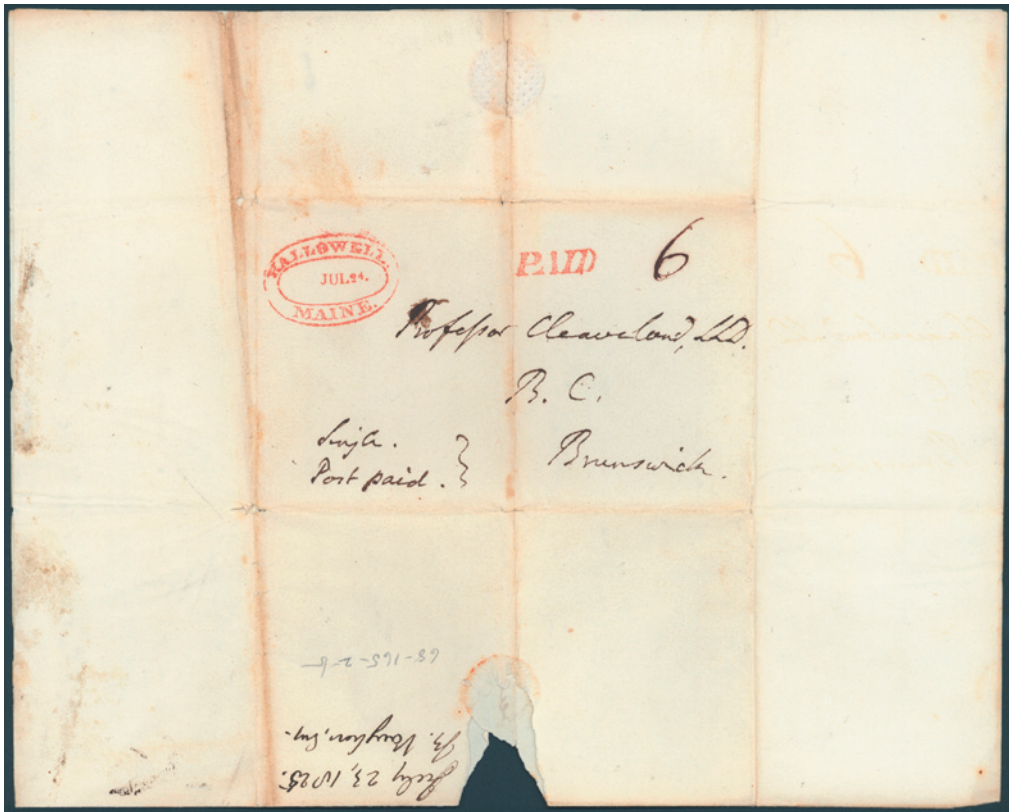 HALLOWELL.
JUL 24.
MAINE.
PAID 6
Professor Cleaveland, LLD.
B. C.
Brunswick.
Single.
Post paid.
68-165-2-
B. Vaughan,
July 23, 1825.